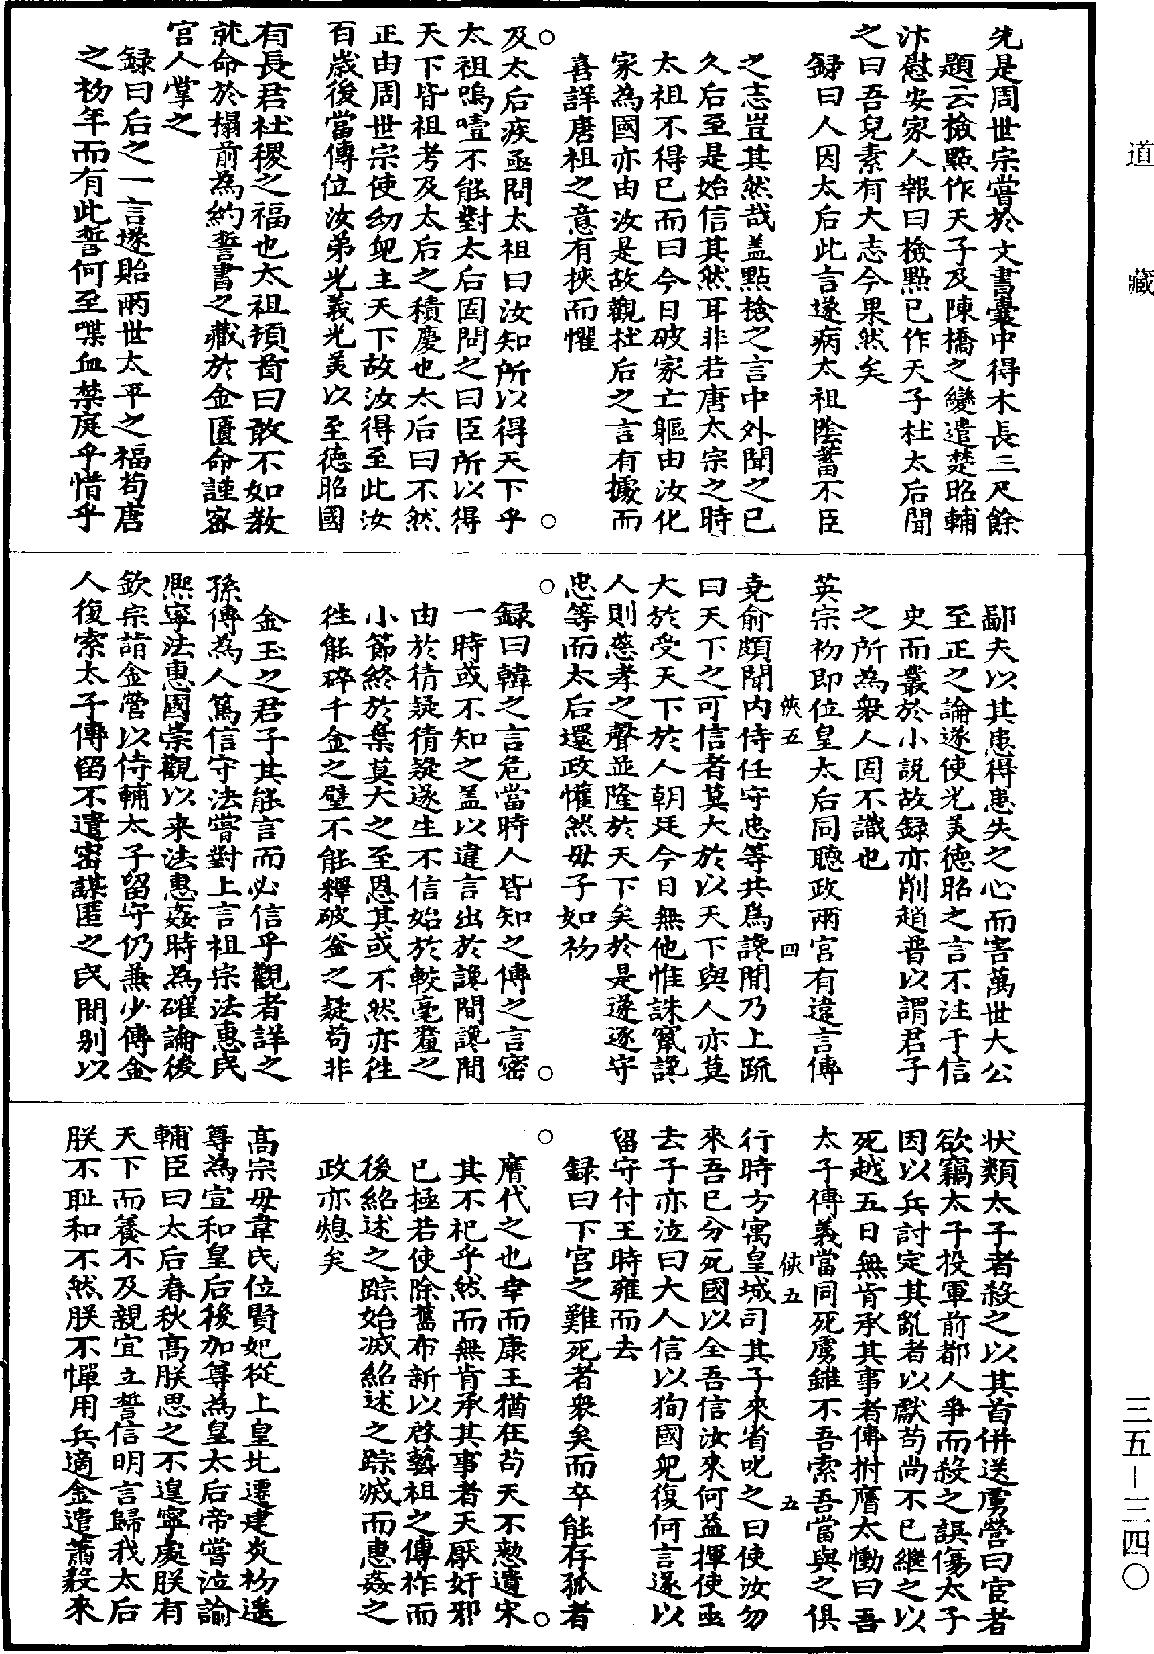 道藏
先是周世宗嘗於文書囊中得木長三尺餘
題云檢點作天子及陳橋之變遣楚昭輔
汴慰安家人報曰檢點已作天子杜太后聞
之曰吾兒素有大志今果然矣
錄曰人因太后此言遂病太祖陰蓄不臣
之志豈其然哉蓋點撿之言中外聞之已
久后至是始信其然耳非若唐太宗之時
太祖不得已而曰今日破家亡軀由汝化
家為國亦由汝是故觀杜后之言有據而
喜詳唐祖之意有挾而懼
○ ○
及太后疾亟問太祖曰汝知所以得天下乎
太祖嗚噎不能對太后固問之曰臣所以得
天下皆祖考及太后之積慶也太后曰不然
正由周世宗使幼兒主天下故汝得至此汝
百歲後當傳位汝弟光義光美以至德昭國
有長君社稷之福也太祖頓首曰敢不如教
就命於榻前為約誓書之藏於金匱命謹密
官人掌之
錄曰后之一言遂貽兩世太平之福苟唐
之初年而有此誓何至喋血禁庭乎惜乎
鄙夫以其患得患失之心而害萬世大公
至正之論遂使光美德昭之言不注于信
史而叢於小説故録亦削趙普以謂君子
之所為衆人固不識也
英宗初即位皇太后同聽政兩宮有違言傳
俠五 四
堯俞頗聞內侍任守忠等共為讒間乃上疏
曰天下之可信者莫大於以天下與人亦莫
大於受天下於人朝廷今日無他惟誅竄讒
人則慈孝之聲並隆於天下矣於是遂逐守
忠等而太后還政懽然母子如初
○ ○
錄曰韓之言危當時人皆知之傳之言密
一時或不知之蓋以違言出於讒間讒間
由於猜疑猜疑遂生不信始於較毫釐之
小節終於棄莫大之至恩其或不然亦往
往能碎千金之璧不能釋破釜之疑苟非
金玉之君子其能言而必信乎觀者詳之
孫傳為人篤信守法嘗對上言祖宗法惠民
熙寧法惠國崇觀以来法惠姦時為確論後
欽宗請金營以侍輔太子留守仍兼少傳金
人復索太子傳留不遣密謀匿之民間别以
状類太子者殺之以其首併送虜營曰宦者
欲竊太子投軍前都人爭而殺之誤傷太子
因以兵討定其亂者以獻苟尚不已繼之以
死越五日無肯承其事者傳拊膺太慟曰吾
太子傳義當同死虜雖不吾索吾當與之俱
俠五 五
行時方寓皇城司其子來省叱之曰使汝勿
來吾已分死國以全吾信汝來何益揮使亟
去子亦泣曰大人信以狥國兒復何言遂以
留守付王時雍而去
錄曰下宫之難死者衆矣而卒能存孤者
○ ○
膺代之也幸而康王猶在茍天不憖遺宋
其不祀乎然而無肯承其事者天厭奸邪
已極若使除舊布新以啓藝祖之傳祚而
後紹述之踪始滅紹述之踪滅而惠姦之
政亦熄矣
高宗母韋氏位賢妃從上皇北遷建炎初遙
尊為宣和皇后後加尊為皇太后帝嘗泣諭
輔臣曰太后春秋高朕思之不遑寧處朕有
天下而養不及親宜立誓信明言歸我太后
朕不耻和不然朕不憚用兵適金遣蕭毅來
三五－三四〇